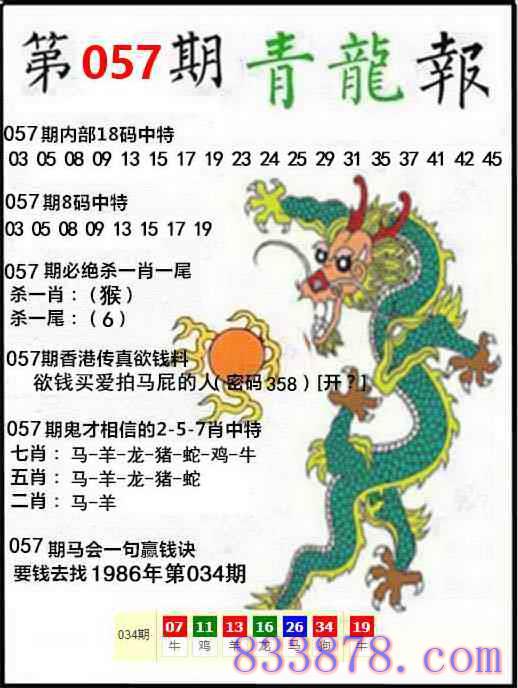 第057期青龍報
057期内部18码中特
03 05 08 09 13 15 17 19 23 24 25 29 31 35 37 41 42 45
057期8码中特
03 05 08 09 13 15 17 19
057期必绝杀一肖一尾
杀一肖：（猴）
杀一尾：（6）
057期香港传真欲钱料
欲钱买爱拍马屁的人（密码358）[开？]
057期鬼才相信的2-5-7肖中特
七肖：马-羊-龙-猪-蛇-鸡-牛
五肖：马-羊-龙-猪-蛇
二肖：马-羊
057期马会一句赢钱诀
要钱去找1986年第034期
034期 07 11 13 16 26 34 19
牛 鸡 羊 龙 马 狗 牛
833878.com